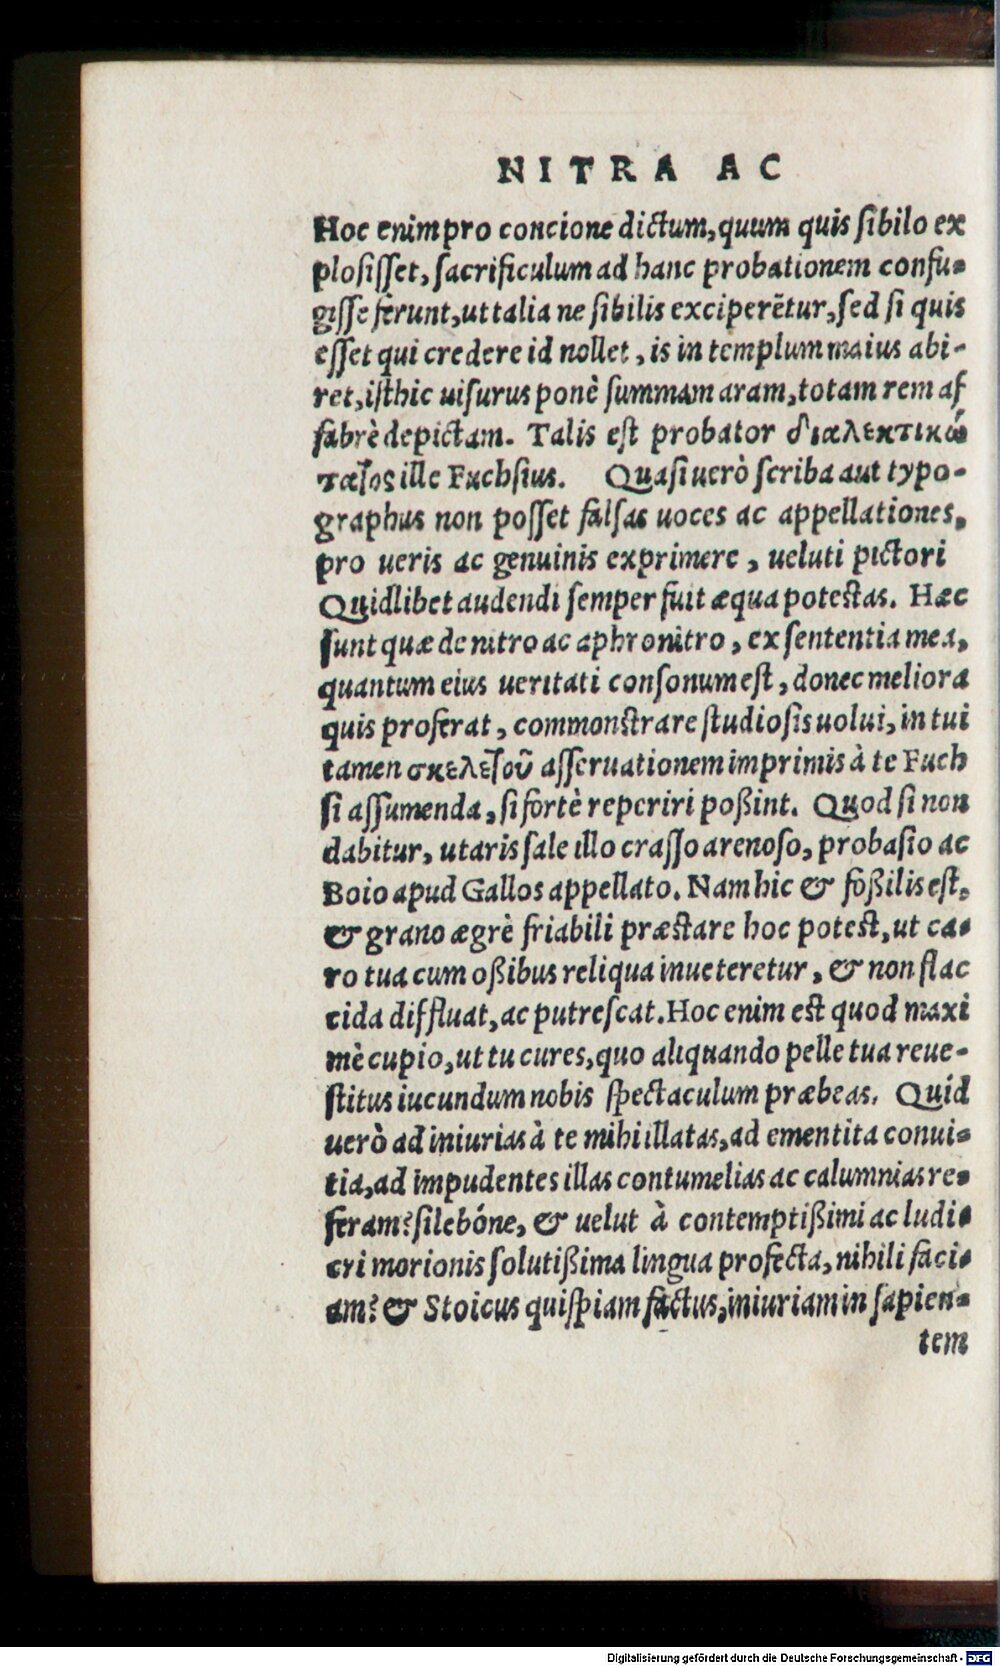 NITRA AC
Hoc enim pro concione dictum, quum quis sibilo ex
plosisset, sacrificulum ad hanc probationem confu-
gisse ferunt, ut talia ne sibilis exciperẽtur, sed si quis
esset qui credere id nollet, is in templum maius abi-
ret, isthic uisurus ponè summam aram, totam rem af
fabrè depictam. Talis est probator διαλεκτικώ
τατος ille Fuchsius. Quasi uerò scriba aut typo-
graphus non posset falsas uoces ac appellationes,
pro ueris ac genuinis exprimere, ueluti pictori
Quidlibet audendi semper fuit æqua potestas. Hæc
sunt quæ de nitro ac aphronitro, ex sententia mea,
quantum eius ueritati consonum est, donec meliora
quis proferat, commonstrare studiosis uolui, in tui
tamen σκελετοῦ asseruationem imprimis à te Fuch
si assumenda, si fortè reperiri poßint. Quod si non
dabitur, utaris sale illo crasso arenoso, probasio ac
Boio apud Gallos appellato. Nam hic & foßilis est,
& grano ægrè friabili præstare hoc potest, ut ca-
ro tua cum oßibus reliqua inueteretur, & non flac
cida diffluat, ac putrescat. Hoc enim est quod maxi
mè cupio, ut tu cures, quo aliquando pelle tua reue-
stitus iucundum nobis spectaculum præbeas. Quid
uerò ad iniurias à te mihi illatas, ad ementita conui-
tia, ad impudentes illas contumelias ac calumnias re-
feram? silebóne, & uelut à contemptißimi ac ludi-
cri morionis solutißima lingua profecta, nihili faci-
am? & Stoicus quispiam factus, iniuriam in sapien-
tem
Digitalisierung gefördert durch die Deutsche Forschungsgemeinschaft - DFG